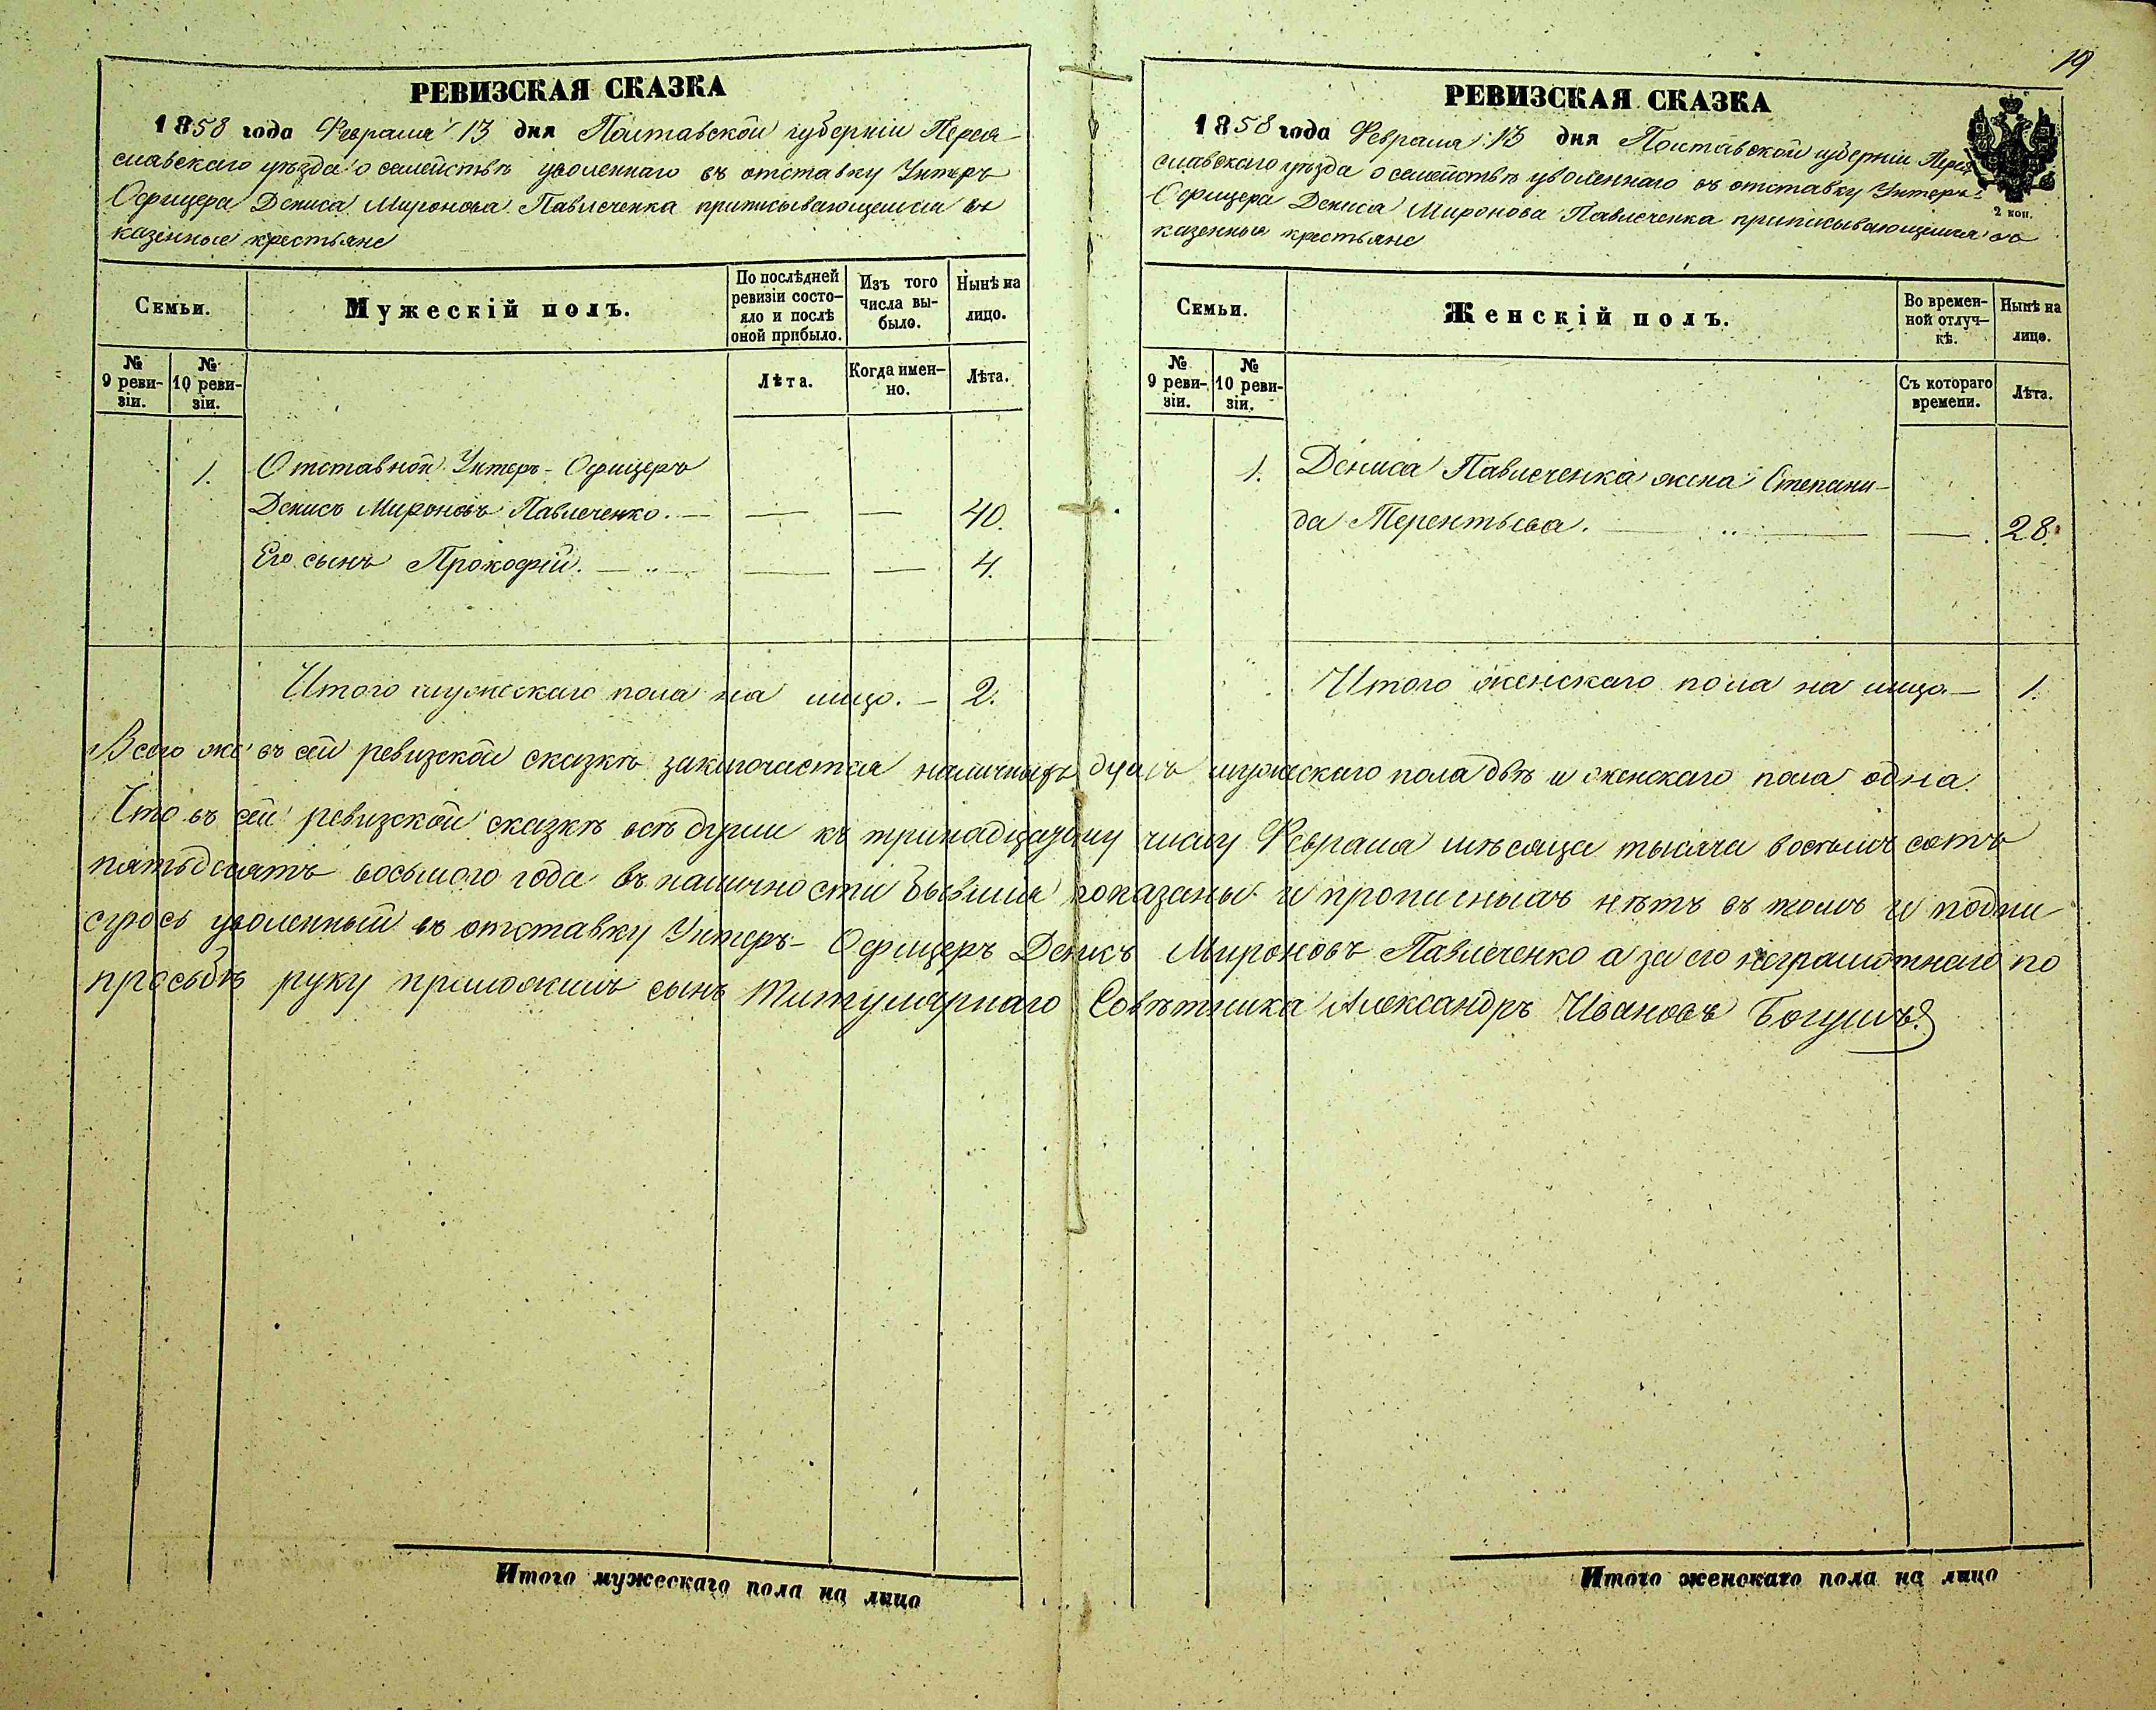 19
РЕВИЗСКАЯ СКАЗКА
1858 года Февраля 13 дня Полтавской губерніи Перея-
славскаго уѣзда о семействѣ уволеннаго въ отставку Унтеръ
Офицера Дениса Миронова Павличенка приписывающемся въ
казенные крестьяне
Семьи.
Мужескій полъ.
По послѣдней
ревизіи состо-
яло и послѣ
оной прибыло.
Изъ того
числа вы-
было.
Нынѣ на
лицо.
№
9 реви-
зіи.
№
10 реви-
зіи.
Лѣта.
Когда имен-
но.
Лѣта.
1. Отставной Унтеръ-Офицеръ
Денисъ Мироновъ Павличенко. — — — 40.
Его сынъ Прокофій. — — — 4.
Итого мужескаго пола на лицо. — 2.
РЕВИЗСКАЯ СКАЗКА
1858 года Февраля 13 дня Полтавской губерніи Перея-
славскаго уѣзда о семействѣ уволеннаго въ отставку Унтеръ-
Офицера Дениса Миронова Павличенка приписывающемся въ
казенныя крестьяне
2 коп.
Семьи.
Женскій полъ.
Во времен-
ной отлуч-
кѣ.
Нынѣ на
лицо.
№
9 реви-
зіи.
№
10 реви-
зіи.
Съ котораго
времени.
Лѣта.
1. Дениса Павличенка жена Степани-
да Терентьева. — — — 28.
Итого женскаго пола на лицо — 1.
Всего же въ сей ревизской сказкѣ заключается наличныхъ душъ мужескаго пола двѣ и женскаго пола одна.
Что въ сей ревизской сказкѣ всѣ души къ тринадцатому числу Февраля мѣсяца тысяча восемь сотъ
пятьдесятъ восьмого года въ наличности бывшія показаны и прописныхъ нѣтъ въ томъ и подпи-
суюсь уволенный въ отставку Унтеръ-Офицеръ Денисъ Мироновъ Павличенко а за его неграмотнаго по
просьбѣ руку приложилъ сынъ Титулярнаго Совѣтника Александръ Ивановъ Богушъ
Итого мужескаго пола на лицо
Итого женскаго пола на лицо